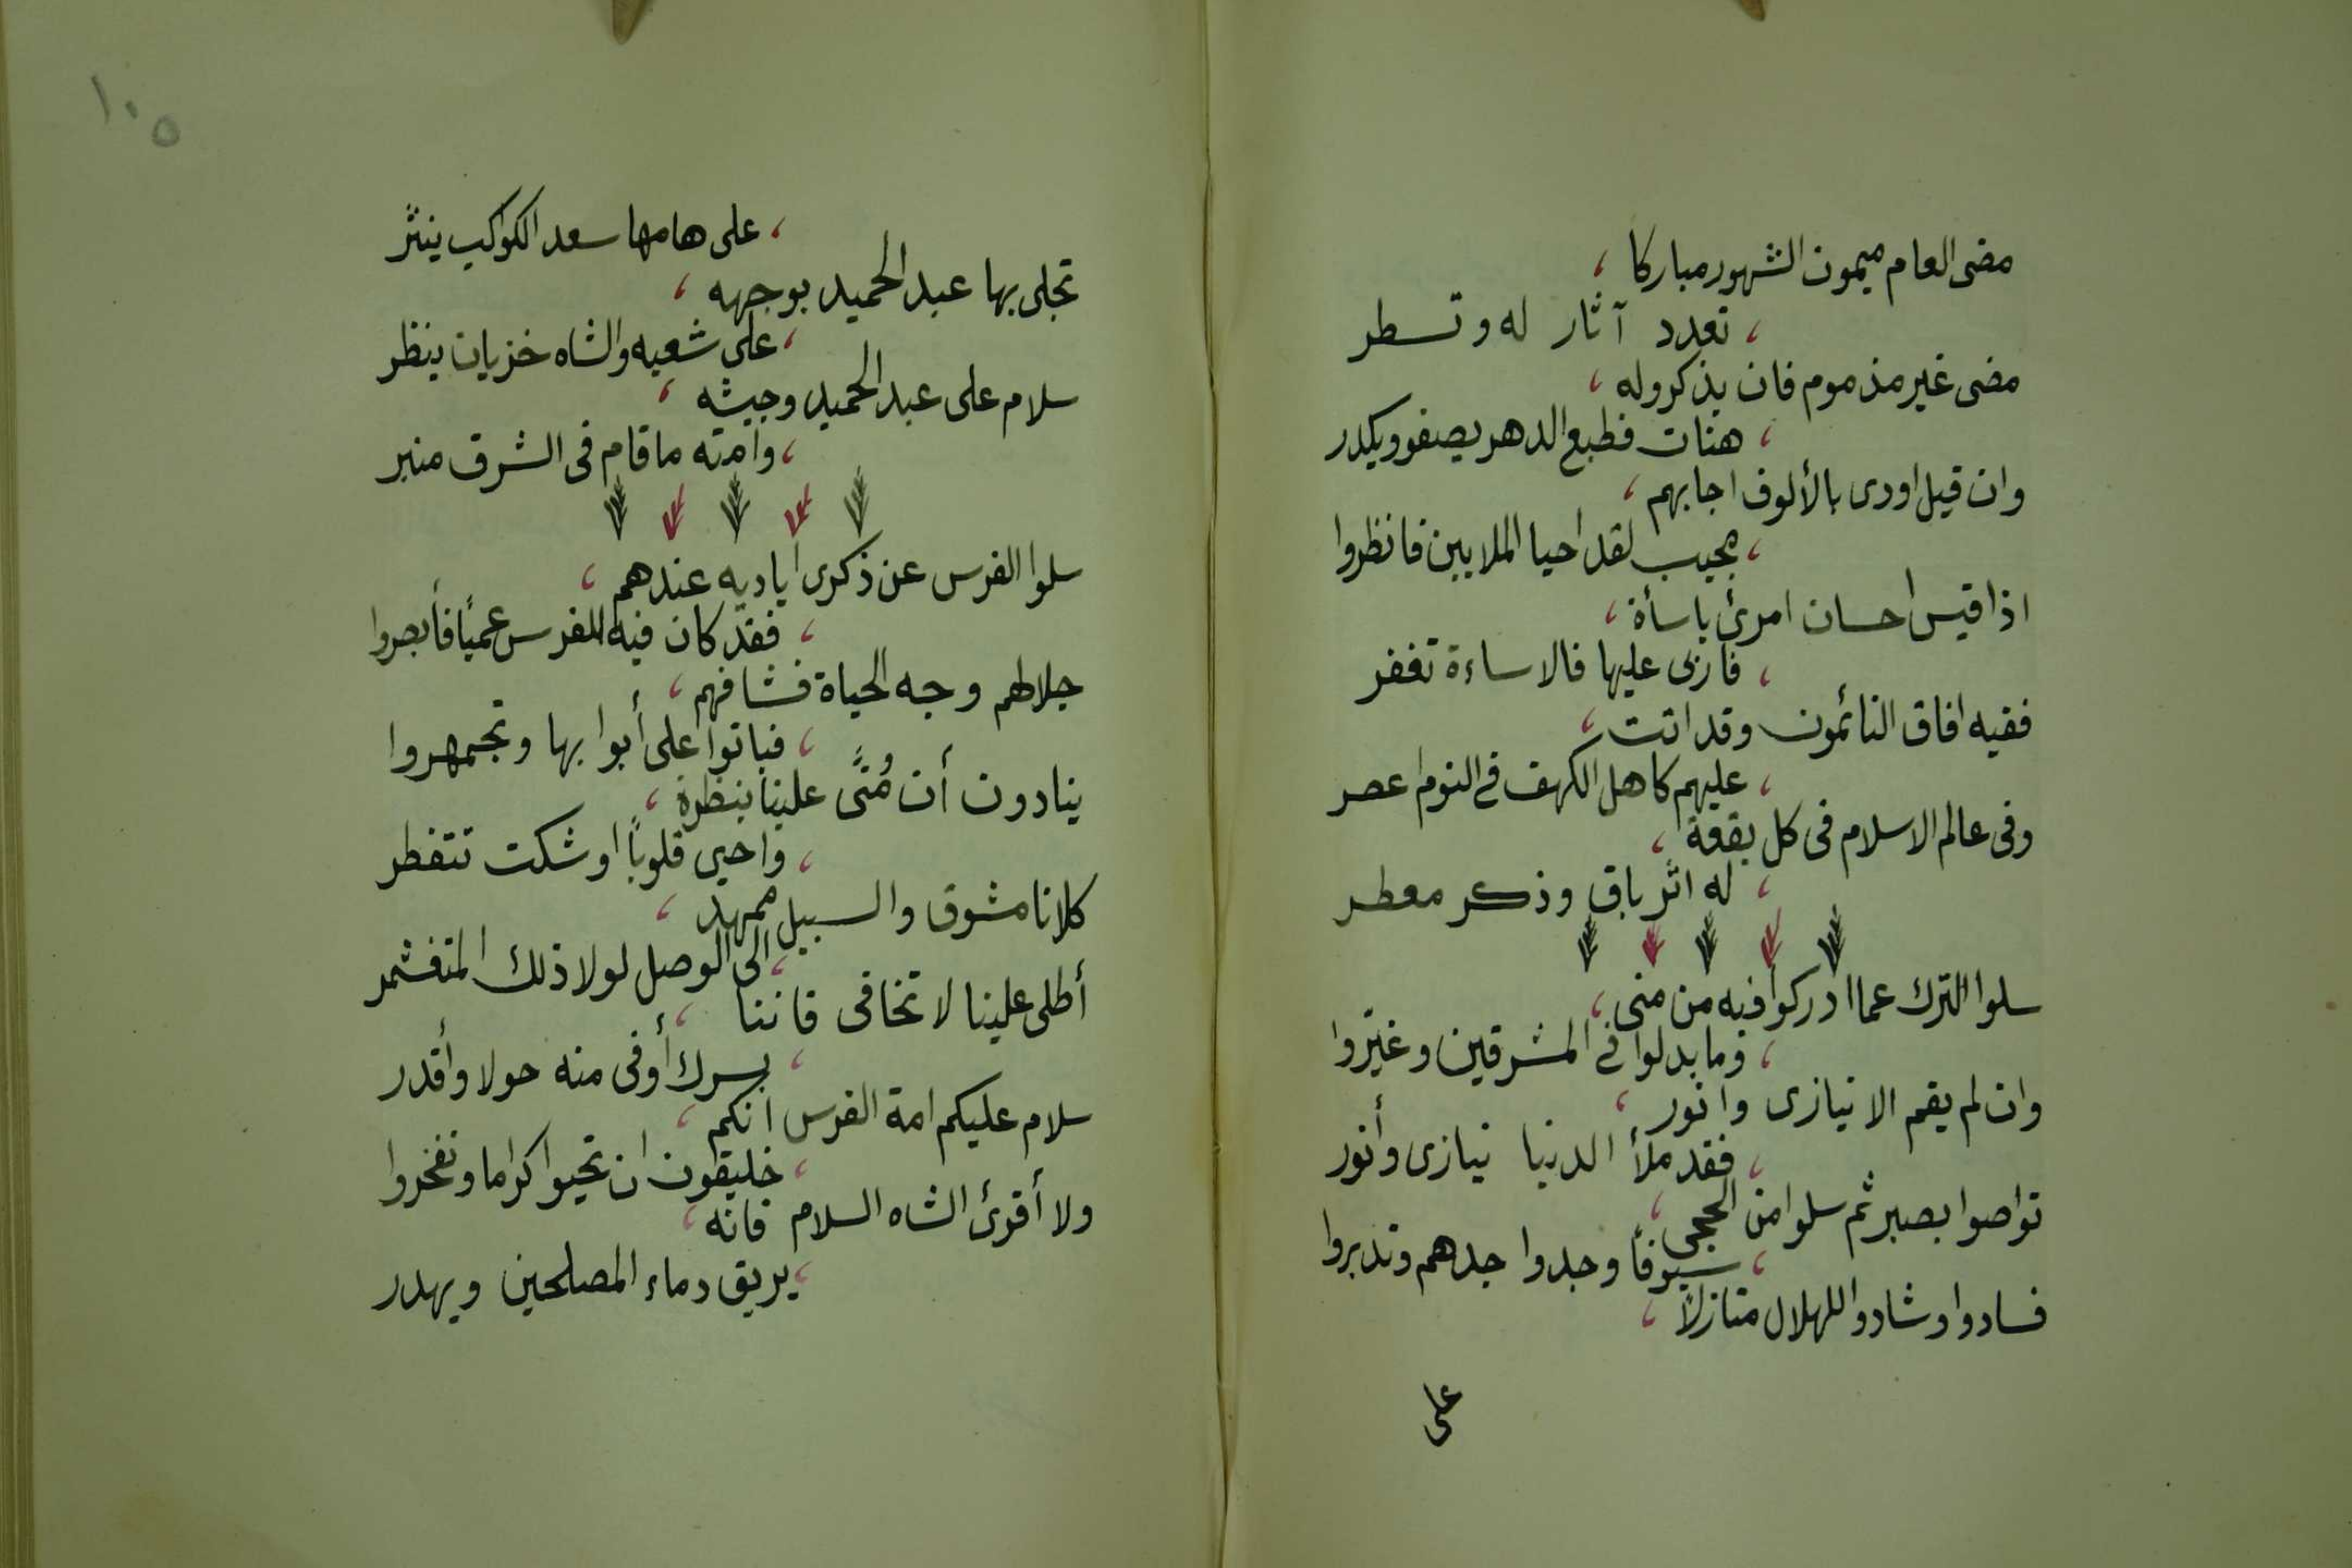 مضى العام ميمون الشهور مباركا ،
، تعدد آثار له وتسطر
مضى غير مذموم فان يذكروله ،
، هنات فطبع الدهر يصفو ويكدر
وان قيل اودى بالألوف اجابهم ،
، مجيب لقد احيا الملايين فانظروا
اذا قيس احسان امرئ باسأة ،
، فاربى عليها فالاساءة تغفر
ففيه افاق النائمون وقد اتت ،
، عليهم كاهل الكهف في النوم اعصر
وفى عالم الاسلام فى كل بقعة ،
، له اثر باق وذكر معطر
سلوا الترك عما ادركوا فيه من منى ،
، وما بدلوا في المشرقين وغيّروا
وان لم يقم الا نيازى وانور ،
، فقد ملأ الدنيا نيازى وأنور
تواصوا بصبر ثم سلوا من الحجى ،
، سيوفاً وجدوا جدهم وتدبروا
فسادوا وشادوا للهلال منازلاً ،
على
١٠٥
، على هامها سعد الكواكب ينثر
تجلى بها عبد الحميد بوجهه ،
، على شعبه والشاه خزيان ينظر
سلام على عبد الحميد وجيشه ،
، وامته ما قام فى الشرق منبر
سلوا الفرس عن ذكرى اياديه عندهم ،
، فقد كان فيه للفرس عمياً فأبصروا
جلا لهم وجه الحياة فشاقهم ،
، فباتوا على أبوابها وتجمهروا
ينادون أن مُنًى علينا بنظرة ،
، واحيي قلوباً اوشكت تتفطر
كلانا مشوق والسبيل ممهد ،
، الى الوصل لولا ذلك المتغشمر
أطلى علينا لا تخافى فاننا ،
، بسرك أوفى منه حولا وأقدر
سلام عليكم امة الفرس انكم ،
، خليقون ان تحيوا كراما وتفخروا
ولا أقرئ الشاه السلام فانه ،
، يريق دماء المصلحين ويهدر